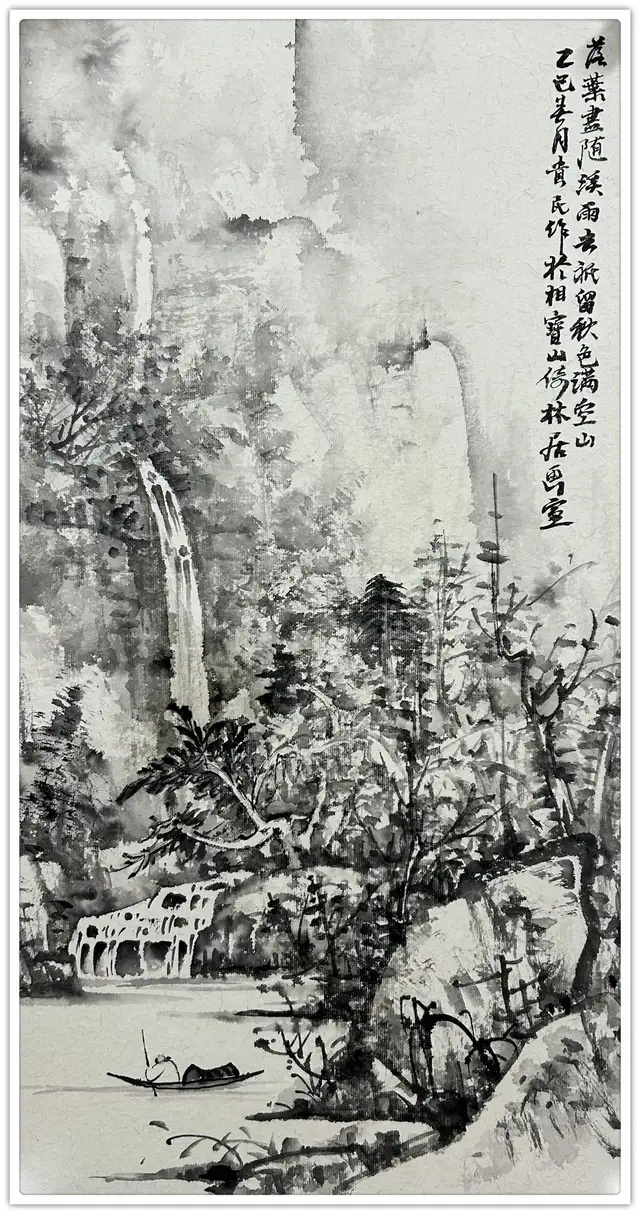 落葉盡随溪雨去祇留秋色满空山
乙巳春月貴民作於相寶山倚林居畫室